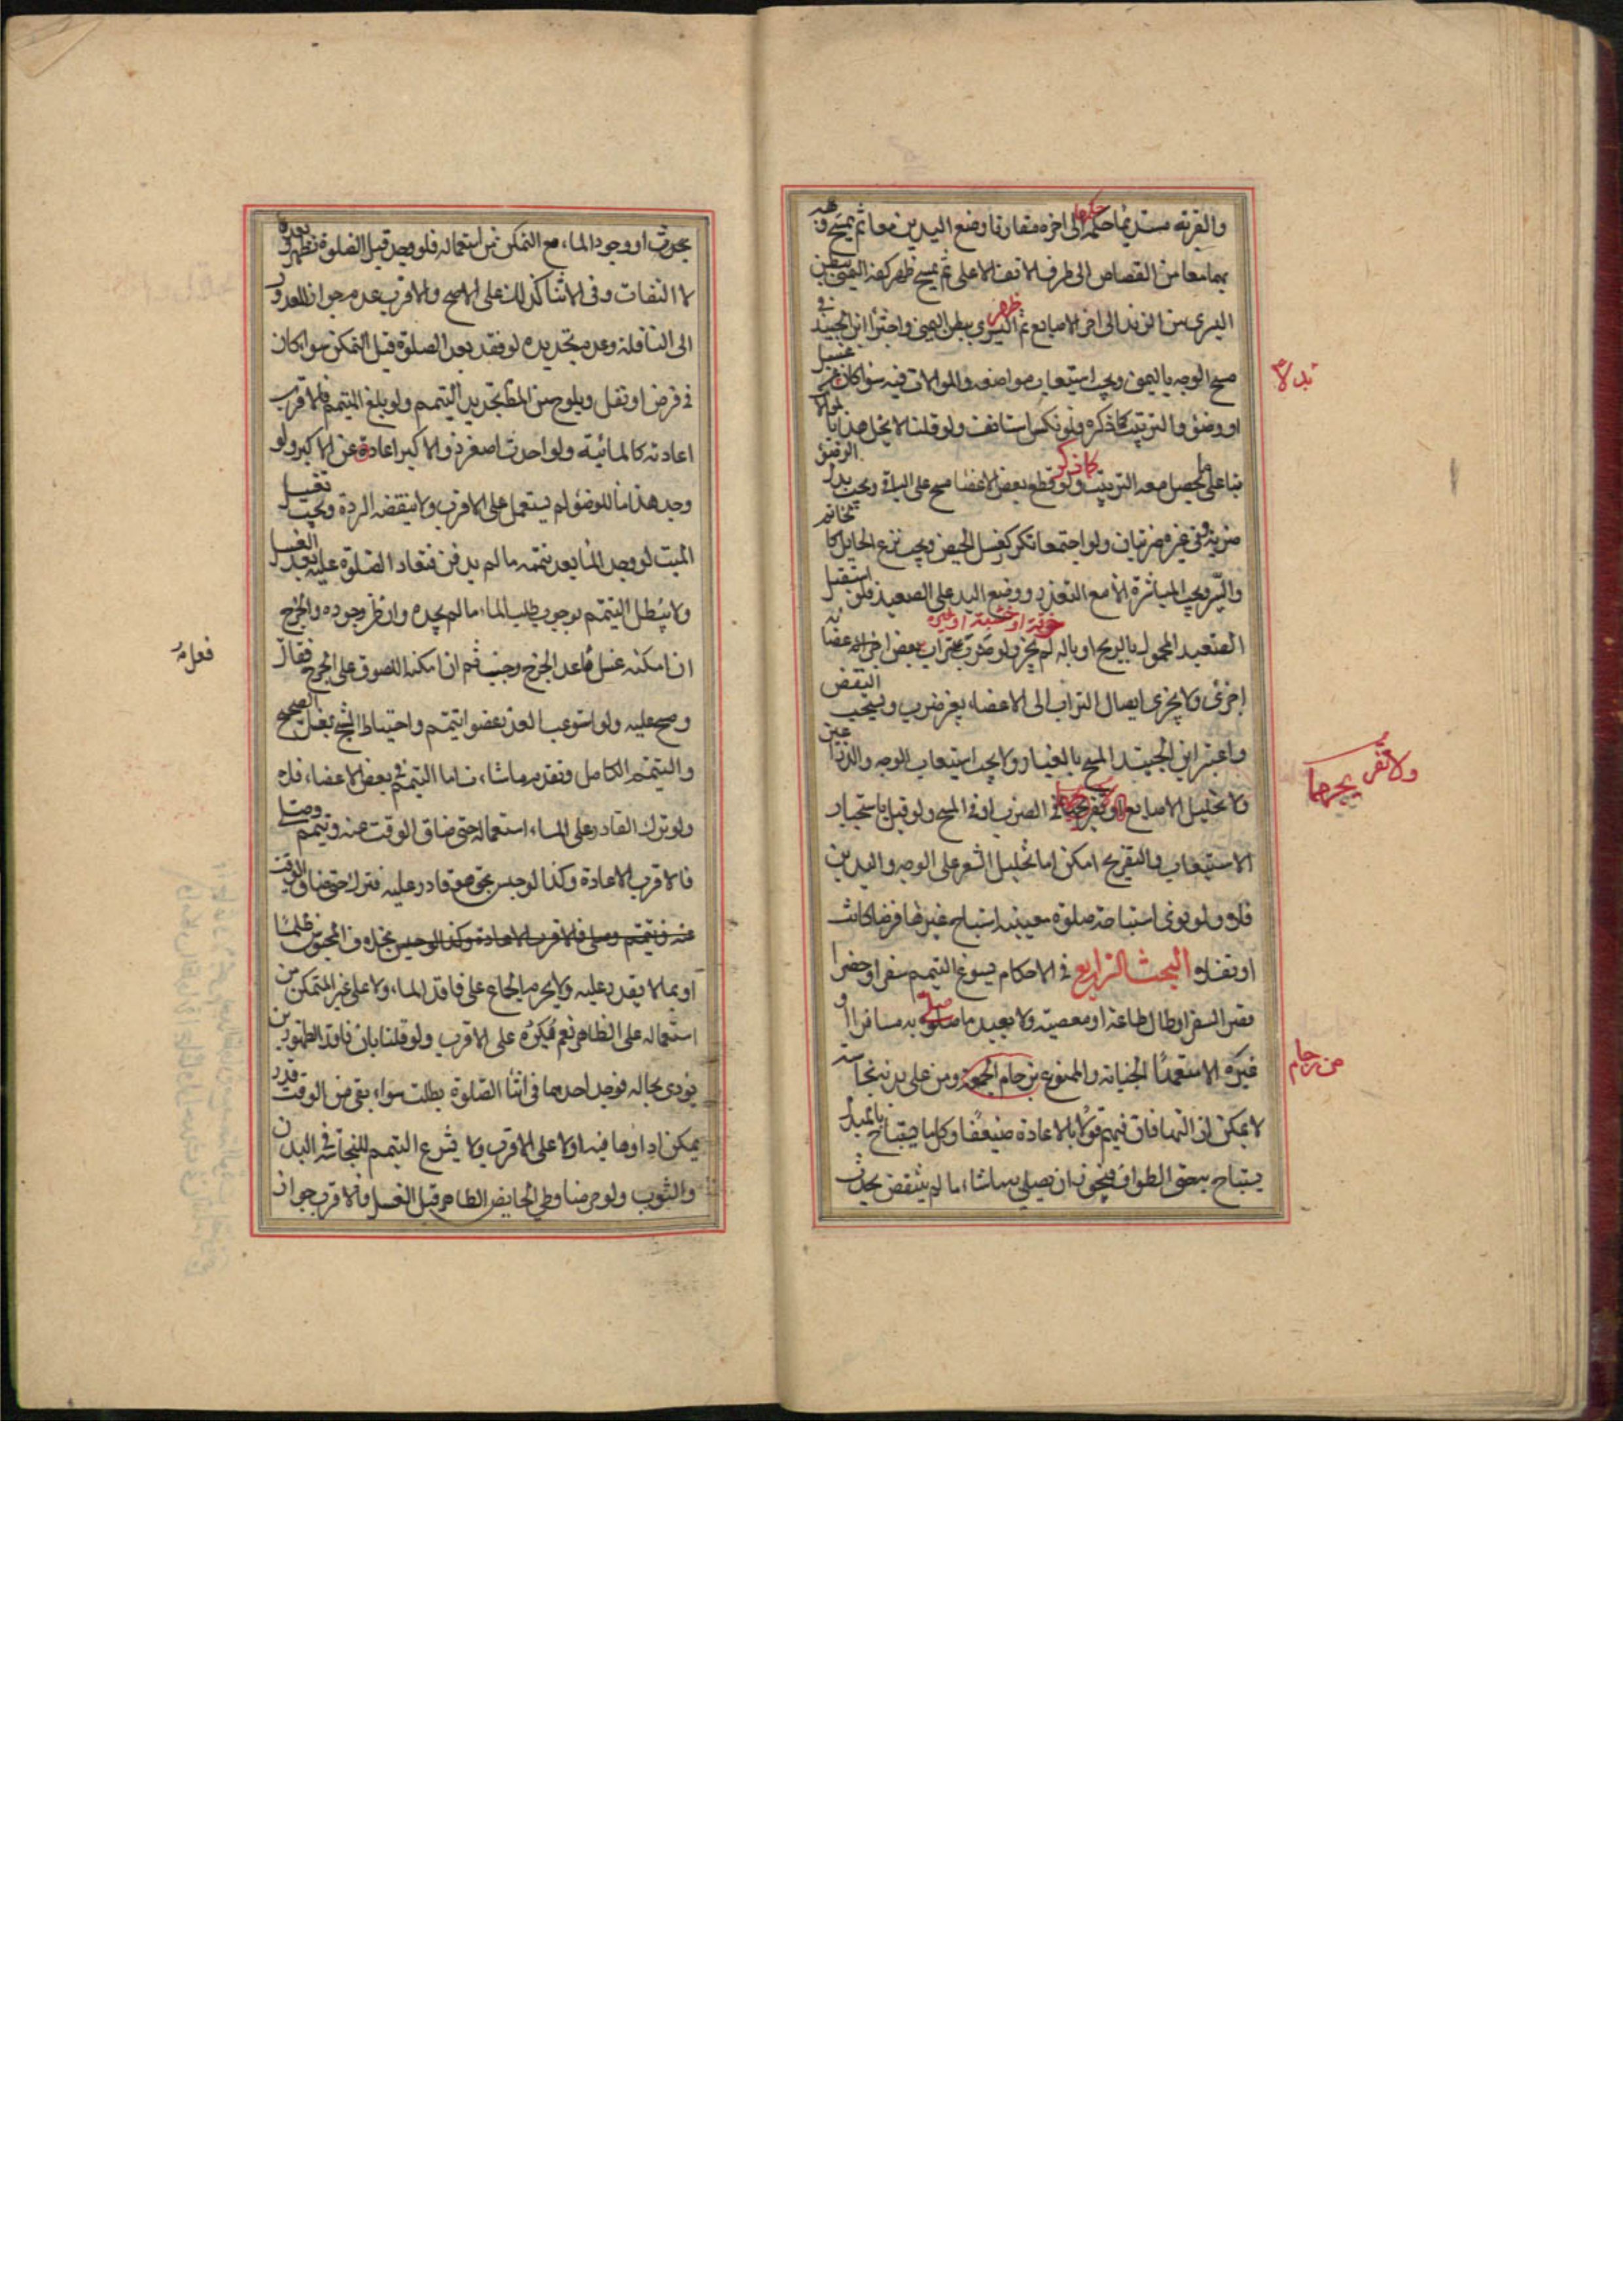 والقربة مستديما حكمها الى اخره مقارنا وضع اليدين معا ثم يمسح وجهه
بهما معا من القصاص الى طرف الانف الاعلى ثم يمسح ظهر كفه اليمنى ببطن
اليسرى من الزند الى اخر الاصابع ثم ظهر اليسرى ببطن اليمنى واجتزا ابن الجنيد في
مسح الوجه باليمين ويجب استيعاب مواضعه والموالات فيه سواء كان عن غسل
بدلا
او وضوء والترتيب كما ذكر فلو نكس استانف ولو قلنا لا يخل هذا بالموالاة
بنا على ما يحصل معه الترتيب ولو قطع بعض الاعضا مسح على الباقي ويجب بدل الوضوء
ضربة وفي غيره ضربتان ولو اجتمعا تكرر كغسل الحيض ويجب نزع الحايل كالخاتم
والسير ويجب المباشرة الا مع التعذر ووضع اليد على الصعيد فلو استقبل
خرقة او خشبة او غيره
الصعيد المحمول بالريح او بالة لم يجز ولو ضرب على تراب بعض اعضائه
اجزئ ولا يجزى ايصال التراب الى الاعضاء بغير ضرب ويستحب النفض
واعتبر ابن الجنيد المسح بالغبار ولا يجب استيعاب الوجه والذراعين
ولا تفريجها
ولا تخليل الاصابع في الضرب او في المسح ولو قيل باستحباب
الاستيعاب والتفريج امكن اما تخليل الشعر على الوجه واليدين
فلا ولو نوى استباحة صلوة معينة استباح غيرها فرضا كانت
او نفلا البحث الرابع في الاحكام يسوغ التيمم سفرا وحضرا
قصر السفر او طال طاعة او معصية ولا يعيد ما صلى به مسافرا او
غيره الا متعمدا الجنابة والممنوع بزحام الجمعة ومن على بدنه نجاسة
من زحام
لا يمكن ازالتها فان فيهم قولا بالاعادة ضعيفا وكلما يستباح بالمبدل
يستباح به حتى الطواف فيجوز ان يصلي به ما شاء ما لم ينتقض بحدث
بحدث او وجود الماء مع التمكن من استعماله فلو وجد قبل الصلوة تطهر وبعدها
لا التفات وفي الاثنا كذلك على الاصح والاقرب عدم جواز العدول
الى النافلة وعدم تجديده لو فقد بعد الصلوة قبل التمكن سواء كان
في فرض او نفل ويلوح من المبسوط تجديد التيمم ولو بلغ المتيمم فالاقرب
اعادته كالمائية ولو احدث اصغر ذو الاكبر اعاده عن الاكبر ولو
وجد هذا ماء للوضوء لم يستعمل على الاقرب ولا ينقضه الردة ويجب تغسيل
الميت لو وجد الماء بعد تيممه ما لم يدفن فتعاد الصلوة عليه بعد الغسل
ولا يبطل التيمم بوجوب طلب الماء ما لم يجده وان ظن وجوده والجرح
ان امكنه غسل ما عدا الجرح وجب ثم ان امكنه اللصوق على الجرح فعل
فعله
ومسح عليه ولو استوعب العذر عضوا تيمم واحتياط الشيخ بغسل الصحيح
والتيمم الكامل وتقديم ما شاء فاما التيمم في بعض الاعضاء فلا
ولو ترك القادر على الماء استعماله حتى ضاق الوقت عنه وتيمم وصلى
فالاقرب الاعادة وكذا لو حبس بحق هو قادر عليه فترك حتى ضاق الوقت
عنه فتيمم وصلى فالاقرب الاعادة وكذا لو حبس بخلاف المحبوس ظلما
او بما لا يقدر عليه ولا يحرم الجماع على فاقد الماء ولا على غير المتمكن من
استعماله على الظاهر نعم يكره على الاقرب ولو قلنا بان فاقد الطهورين
يؤدى بحاله فوجد احدهما في اثنا الصلوة بطلت سواء بقى من الوقت قدر
يمكن اداؤها فيه اولا على الاقرب ولا يشرع التيمم للنجاسة في البدن
والثوب ولو حرمنا وطي الحايض الطاهر قبل الغسل فالاقرب جواز